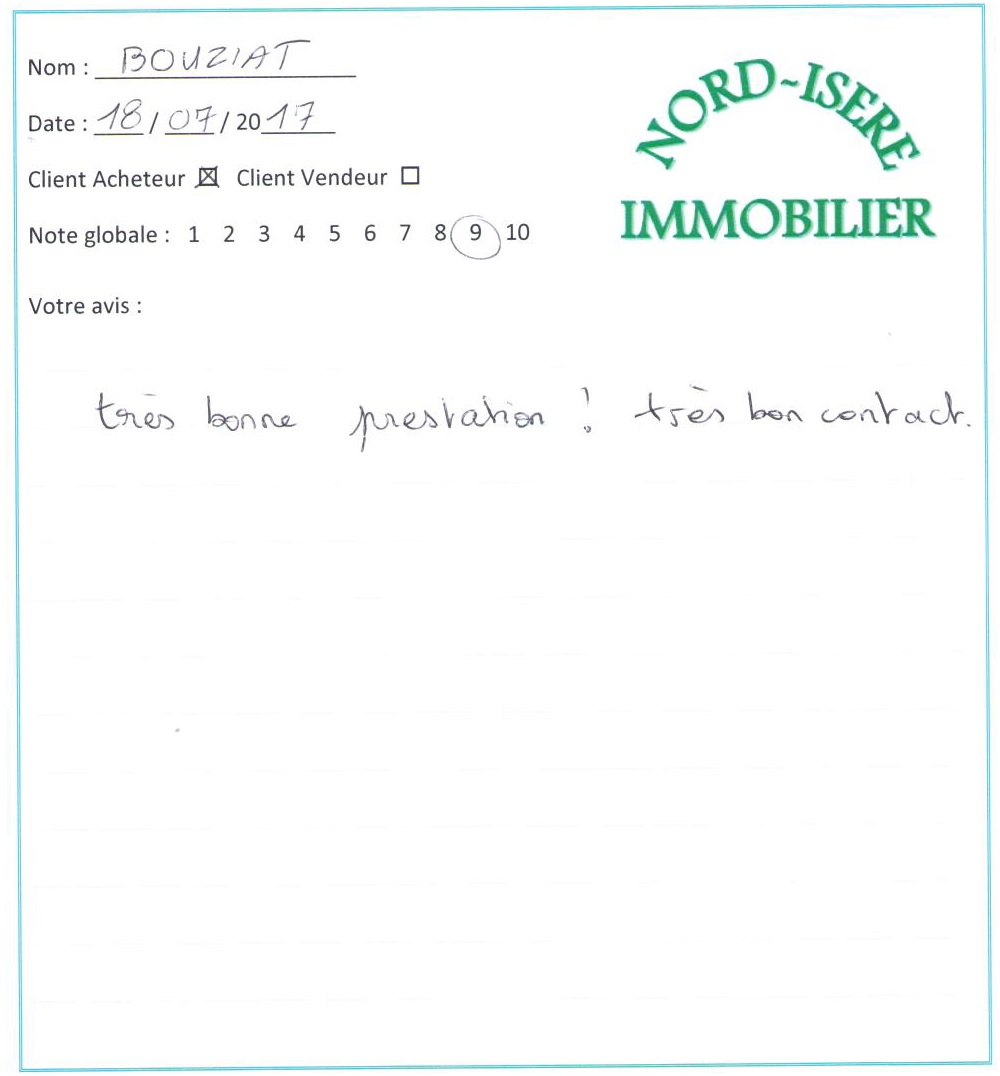 Nom : BOUZIAT
Date : 18 / 07 / 2017
Client Acheteur ☒ Client Vendeur ☐
Note globale : 1 2 3 4 5 6 7 8 9 10
Votre avis :
NORD-ISERE
IMMOBILIER
très bonne prestation ! très bon contact.